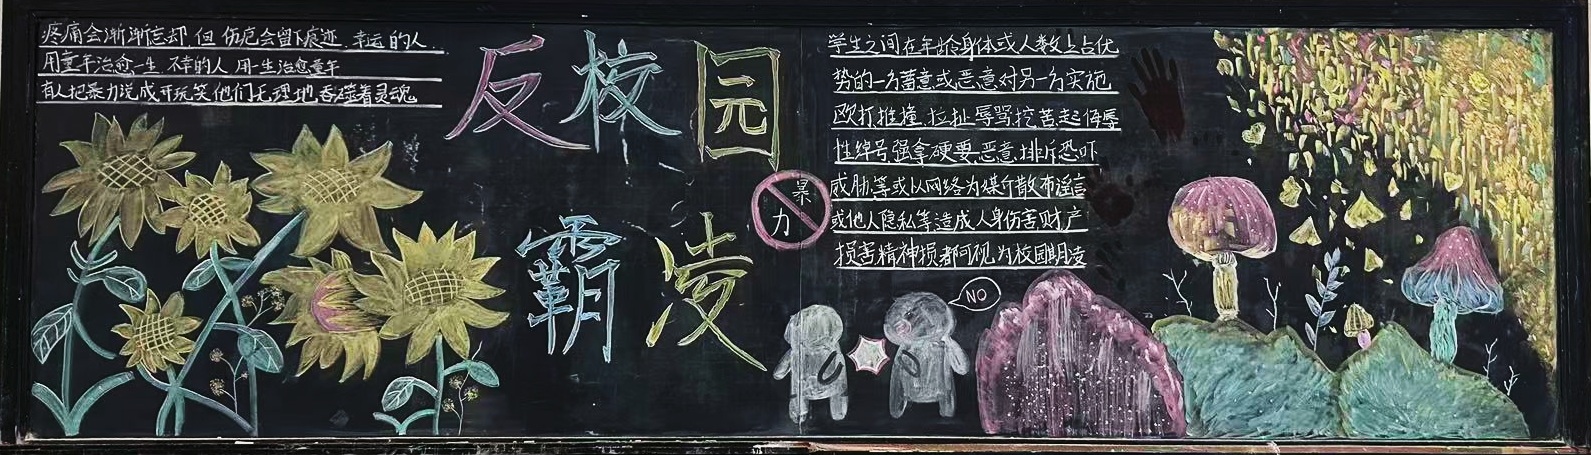 疼痛会渐渐忘却,但伤疤会留下痕迹.幸运的人.
用童年治愈一生 不幸的人 用一生治愈童年
有人把暴力说成开玩笑他们无理地吞噬着灵魂
反校园
霸凌
暴
力
学生之间在年龄身体或人数上占优
势的一方蓄意或恶意对另一方实施
欧打推撞.拉扯辱骂挖苦起侮辱
性绰号强拿硬要.恶意排斥恐吓
威胁等或以网络为媒介散布谣言
或他人隐私等造成人身伤害财产
损害精神损都可视为校园
NO